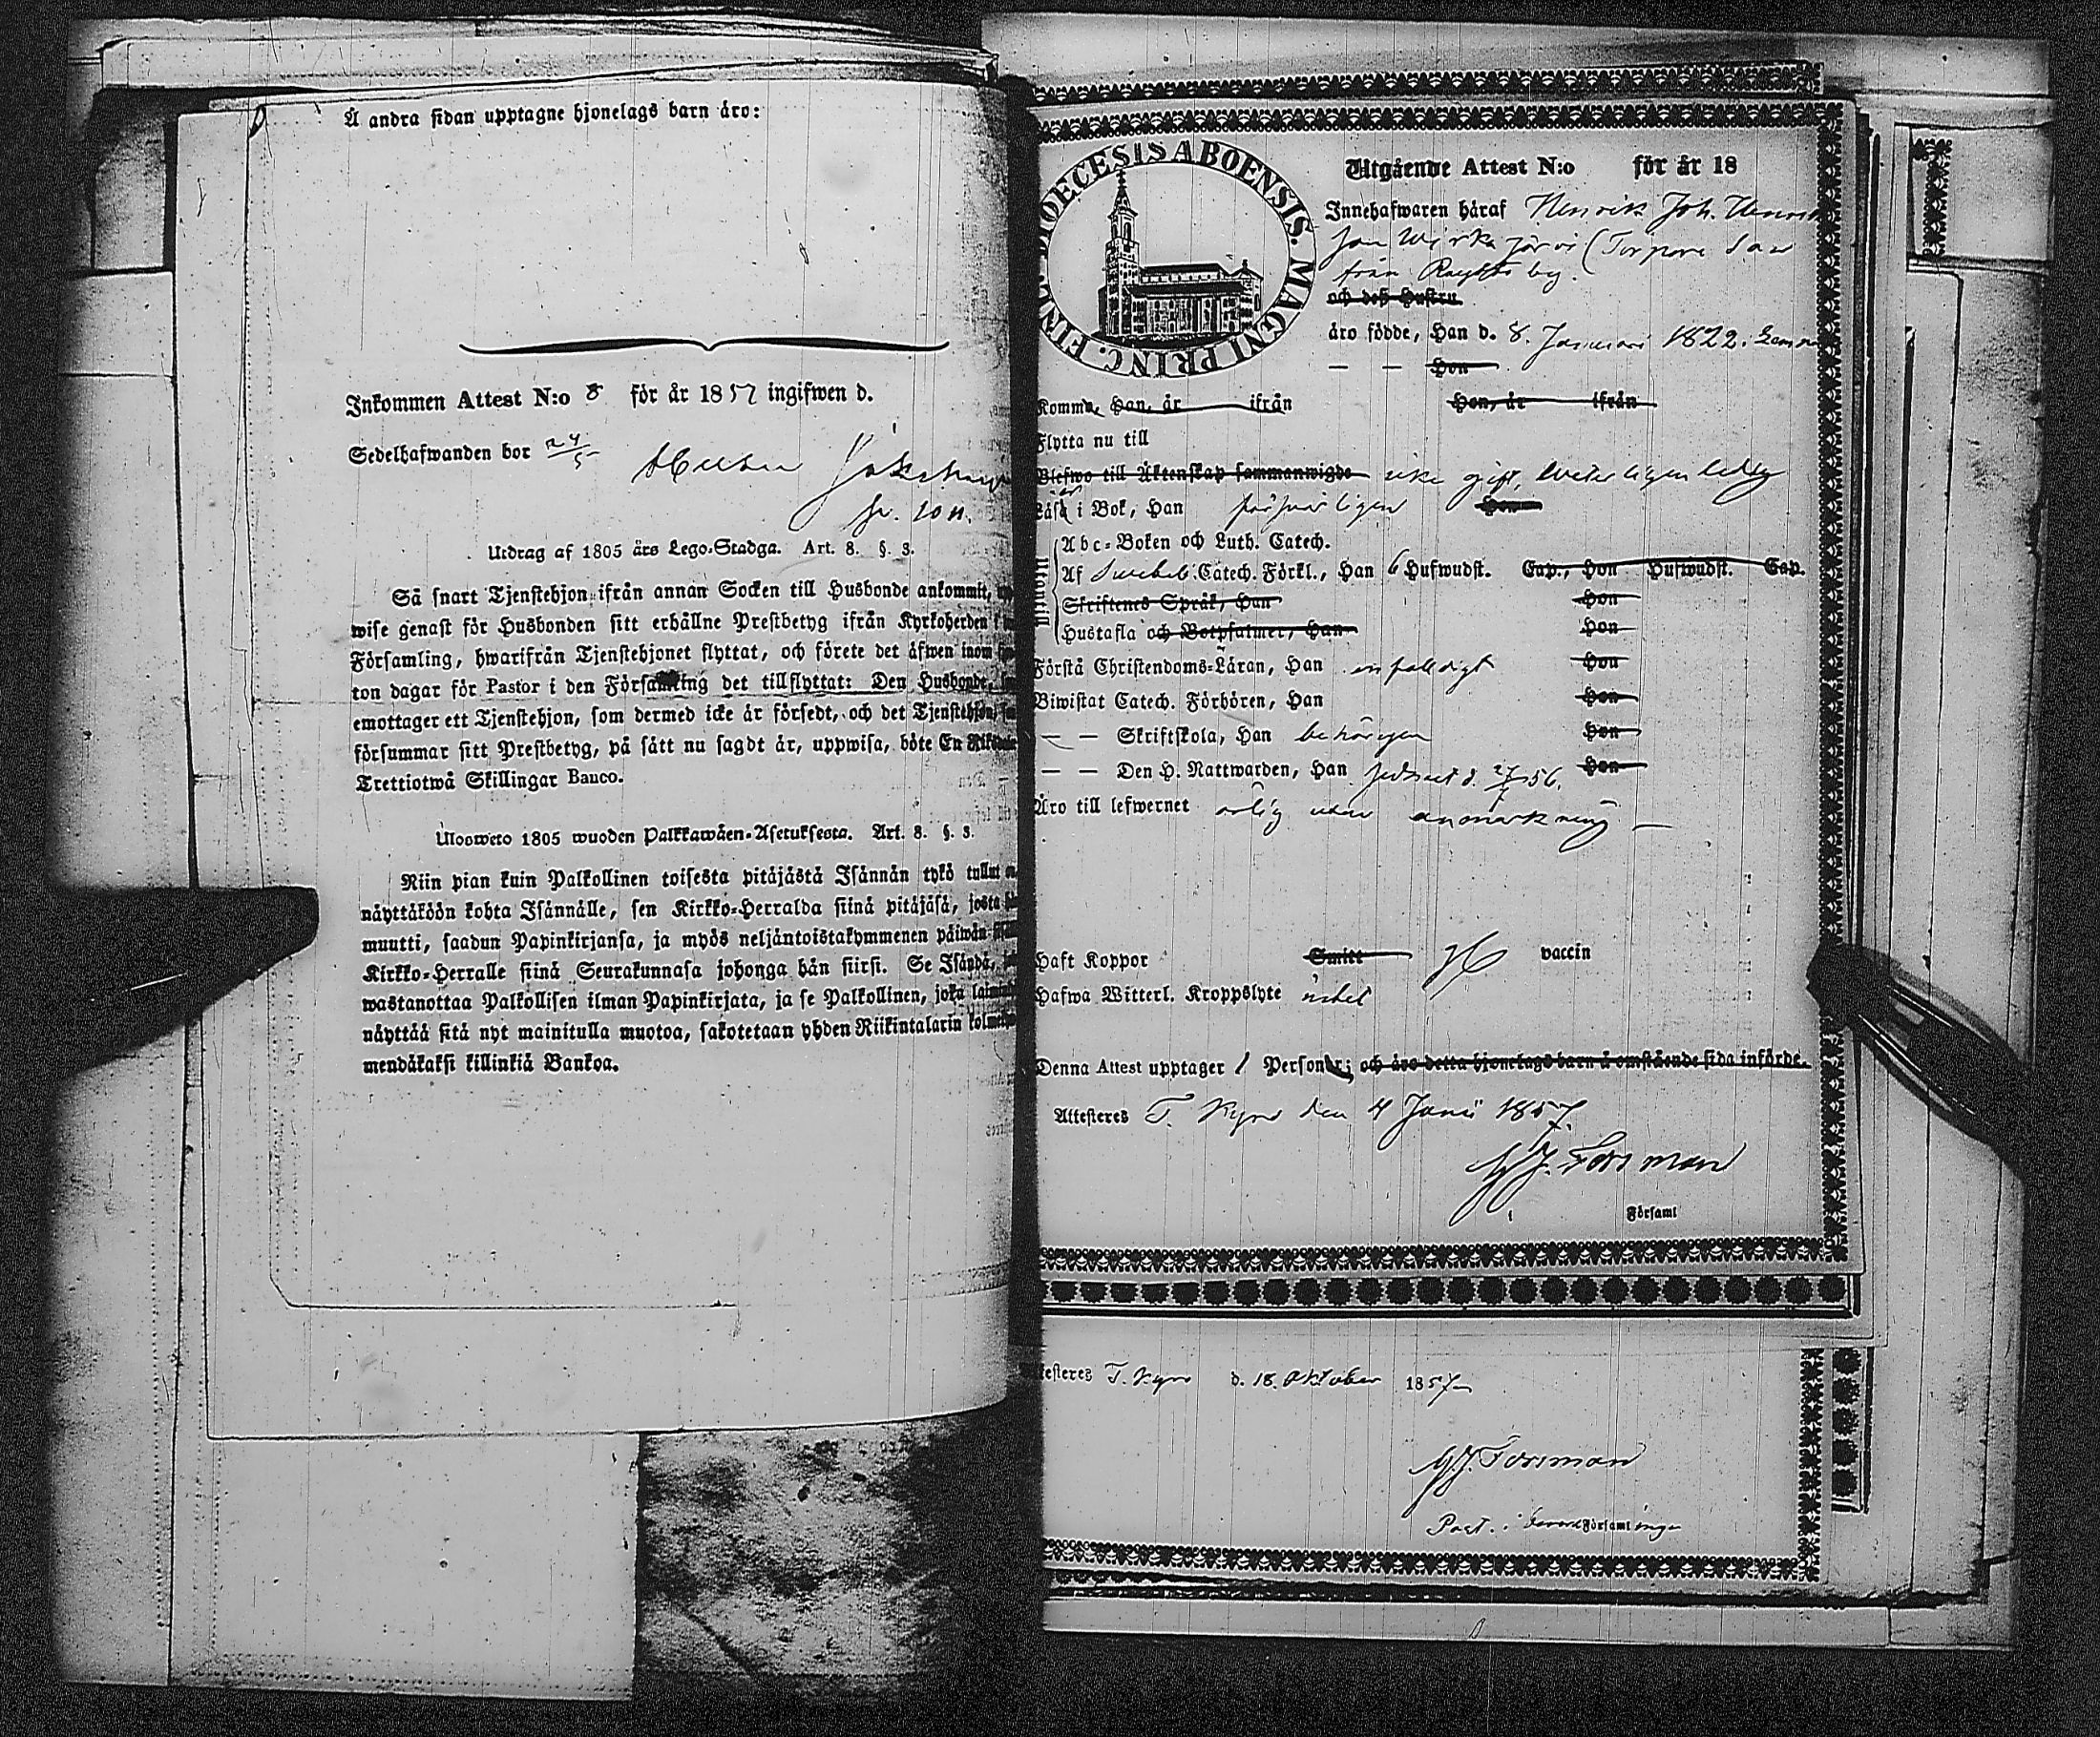 Å andra sidan upptagne hjonelags barn äro:
Inkommen Attest N:o 8 för år 1857 ingifwen d.
Sedelhafwanden bor 24/5
Utdrag af 1805 års Lego-Stadga. Art. 8. §. 3.
Så snart Tjenstehjon ifrån annan Socken till Husbonde ankommit,
wise genast för Husbonden sitt erhållne Prestbetyg ifrån Kyrkoherden
Församling, hwarifrån Tjenstehjonet flyttat, och förete det äfwen inom
ton dagar för Pastor i den Församling det tillflyttat: Den Husbonde,
emottager ett Tjenstehjon, som dermed icke är försedt, och det Tjenstehjon,
försummar sitt Prestbetyg, på sätt nu sagdt är, uppwisa, böte En Riksdaler
Trettiotwå Skillingar Banco.
Ulosweto 1805 wuoden Palkkawäen-Asetuksesta. Art. 8. §. 3.
Niin pian kuin Palkollinen toisesta pitäjästä Isännän tykö tullut
näyttäköön kohta Isännälle, sen Kirkko-Herralda siinä pitäjäsä, josta
muutti, saadun Papinkirjansa, ja myös neljäntoistakymmenen päiwän
Kirkko-Herralle siinä Seurakunnasa johonga hän siirsi. Se Isändä,
wastanottaa Palkollisen ilman Papinkirjata, ja se Palkollinen, joka
näyttää sitä nyt mainitulla muotoa, sakotetaan yhden Riikintalarin
mendäkaksi killinkiä Bankoa.
DIOECESIS ABOENSIS. MAGNI PRINC. FINL.
Utgående Attest N:o för år 18
Innehafwaren häraf Henrik Joh. Henrik
son Wirkajärvi (Torpare Son
från by.
och deß Hustru
äro födde, Han d. 8. Januari 1822.
— — Hon
Komma, Han, år ifrån Hon, år ifrån
Flytta nu till
Blefwo till Äktenskap sammanwigde icke gift, ledig
Läsa i Bok, Han försvarligen Hon
Utantill
Abc-Boken och Luth. Catech.
Af Swebel. Catech. Förkl., Han 6 Hufwudst. Cap., Hon Hufwudst. Cap.
Skriftenes Språk, Han Hon
Hustafla och Botpsalmer, Han Hon
Förstå Christendoms-Läran, Han enfaldigt Hon
Biwistat Catech. Förhören, Han Hon
— — Skriftskola, Han behörigen Hon
— — Den H. Nattwarden, Han sednast d. 56. Hon
Äro till lefwernet ärlig utan anmärkning —
Haft Koppor Smitt vaccin
Hafwa Witterl. Kroppslyte intet
Denna Attest upptager 1 Personer; och äro detta hjonelags barn å omstående sida införde.
Attesteres T. Kyro den 4 Junii 1857.
Forsman
Församl
testeres T. Kyro d. 18. Oktober 1857
Forsman
Past. i Församlinge